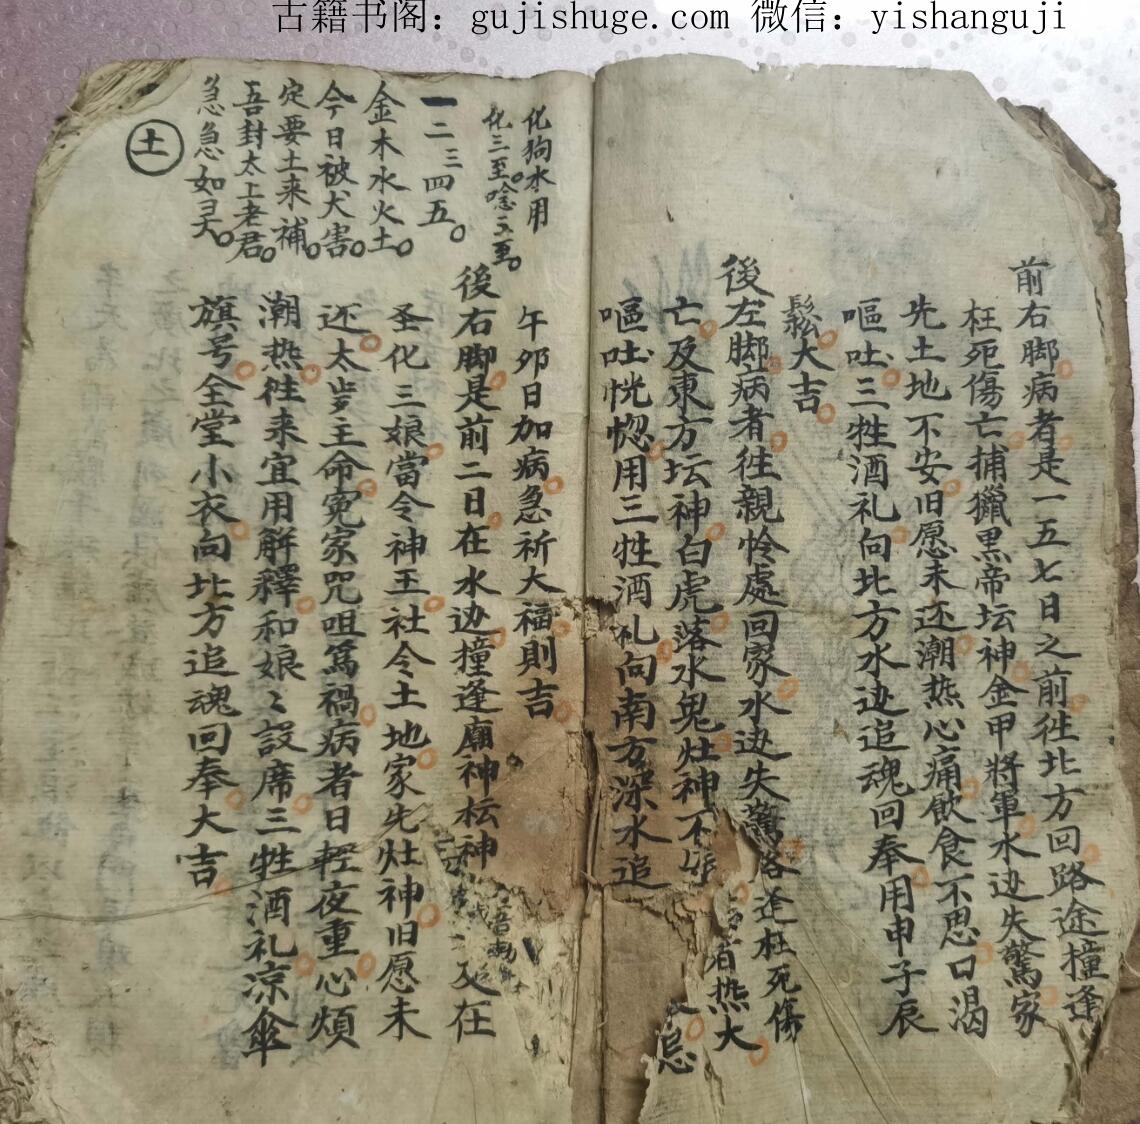 古籍书阁：gujishuge.com 微信：yishanguji
前右脚病者是一五七日之前徃北方回路途撞逢
枉死傷亡捕獵黒帝坛神金甲將軍水边失驚家
先土地不安旧愿未还潮热心痛飲食不思口渴
嘔吐三牲酒礼向北方水边追魂回奉用申子辰
鬆大吉
後左脚病者徃親怜處回家水边失驚路逢枉死傷
亡及東方坛神白虎落水鬼灶神不 有热大
嘔吐恍惚用三牲酒礼向南方深水追 忌
午夘日加病急祈大福則吉
後右脚是前二日在水边撞逢廟神坛神 又在
圣化三娘當令神王社令土地家先灶神旧愿未
还太岁主命冤家咒咀為禍病者日輕夜重心煩
潮热徃来宜用解釋和娘〻設席三牲酒礼凉傘
旗号全堂小衣向北方追魂回奉大吉
化狗水用
化三至唸三至
一二三四五
金木水火土
今日被犬害
定要土来補
吾封太上老君
急急如灵
土